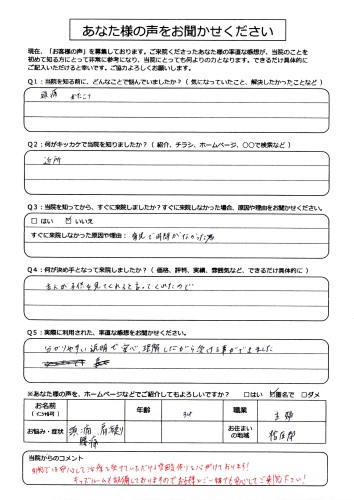 あなた様の声をお聞かせください
現在、「お客様の声」を募集しております。ご来院くださったあなた様の率直な感想が、当院のことを
初めて知る方にとって非常に参考になり、当院にとっても何よりの力となります。できるだけ具体的に
ご記入いただけると幸いです。ご協力よろしくお願いします。
Q1：当院を知る前に、どんなことで悩んでいましたか？（ 気になっていたこと、解決したかったことなど ）
頭痛 肩こり
Q2：何がキッカケで当院を知りましたか？（ 紹介、チラシ、ホームページ、〇〇で検索など ）
近所
Q3：当院を知ってから、すぐに来院しましたか？すぐに来院しなかった場合、原因や理由をお聞かせください。
□ はい ☑ いいえ
すぐに来院しなかった原因や理由： 育児で時間がなかった為
Q4：何が決め手となって来院しましたか？（ 価格、評判、実績、雰囲気など、できるだけ具体的に ）
子供を見てくれると言ってくれたので
Q5：実際に利用された、率直な感想をお聞かせください。
分かりやすい説明で安心、理解しながら受ける事ができました
※あなた様の声を、ホームページなどでご紹介してもよろしいですか？ □はい ☑匿名で □ダメ
お名前
(イニシャル可)
年齢
職業
主婦
お悩み・症状
頭痛、肩こり
腰痛
お住まい
の地域
当院からのコメント